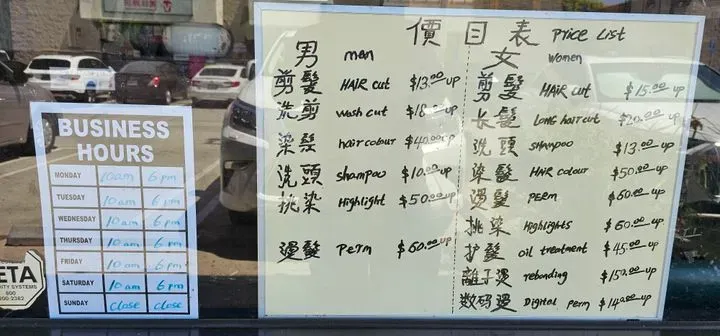 BUSINESS HOURS
MONDAY 10am 6pm
TUESDAY 10am 6pm
WEDNESDAY 10am 6pm
THURSDAY 10am 6pm
FRIDAY 10am 6pm
SATURDAY 10am 6pm
SUNDAY Close Close
ETA
800
價目表 Price List
男 men
剪髮 HAIR cut $13.00 up
洗剪 wash cut up
染髮 hair colour $40.00 up
洗頭 shampoo $10.00 up
挑染 Highlight $50.00 up
燙髮 Perm $60.00 up
女 women
剪髮 HAIR cut $15.00 up
长髮 LONG hair cut $20.00 up
洗頭 SHAMPOO $13.00 up
染髮 HAIR colour $50.00 up
燙髮 PERM $60.00 up
挑染 Highlights $60.00 up
护髮 oil treatment $45.00 up
離子燙 rebonding up
数码燙 Digital perm up